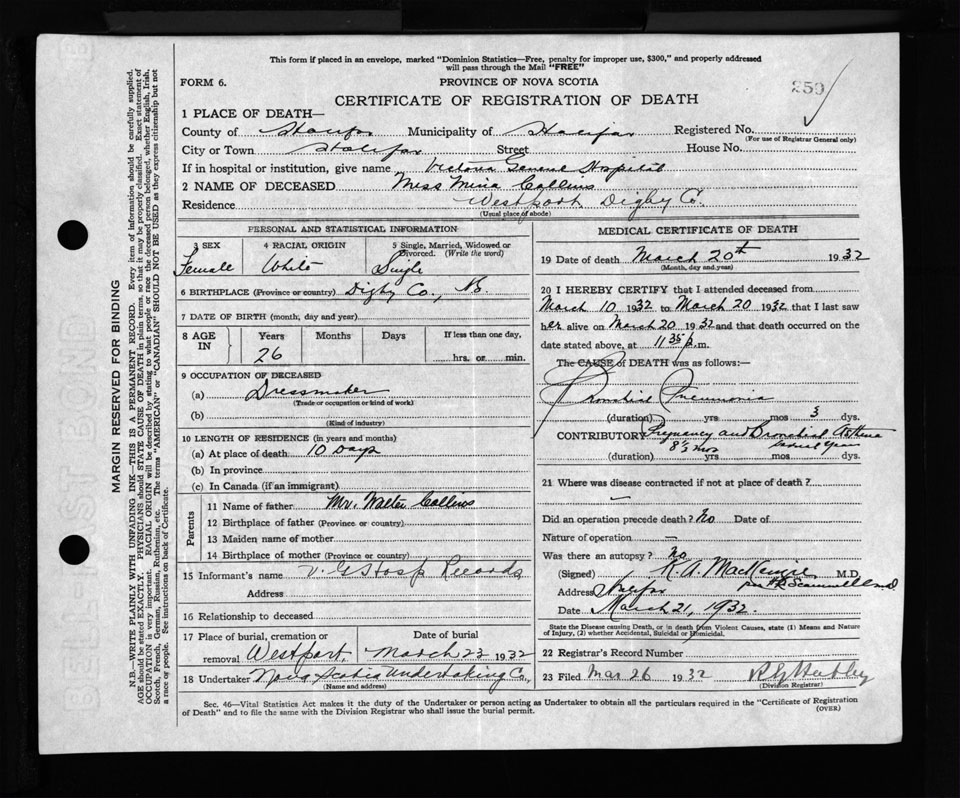 This form if placed in an envelope, marked "Dominion Statistics—Free, penalty for improper use, $300," and properly addressed
will pass through the Mail "FREE"
FORM 6.
PROVINCE OF NOVA SCOTIA
259
CERTIFICATE OF REGISTRATION OF DEATH
1 PLACE OF DEATH—
County of Halifax Municipality of Halifax Registered No.
(For use of Registrar General only)
City or Town Halifax Street House No.
If in hospital or institution, give name Victoria General Hospital
2 NAME OF DECEASED Miss Mina Collins
Residence Westport Digby Co.
(Usual place of abode)
PERSONAL AND STATISTICAL INFORMATION
3 SEX Female
4 RACIAL ORIGIN White
5 Single, Married, Widowed or Divorced. (Write the word) Single
6 BIRTHPLACE (Province or country) Digby Co., N.S.
7 DATE OF BIRTH (month, day and year)
8 AGE IN Years 26 Months Days If less than one day, hrs. or min.
9 OCCUPATION OF DECEASED
(a) Dressmaker
(Trade or occupation or kind of work)
(b)
(Kind of industry)
10 LENGTH OF RESIDENCE (in years and months)
(a) At place of death 10 Days
(b) In province
(c) In Canada (if an immigrant)
Parents
11 Name of father Mr. Walter Collins
12 Birthplace of father (Province or country)
13 Maiden name of mother
14 Birthplace of mother (Province or country)
15 Informant's name V. G. Hosp Records
Address
16 Relationship to deceased
17 Place of burial, cremation or removal Westport, Date of burial March 23 1932
18 Undertaker Nova Scotia Undertaking Co.,
(Name and address)
MEDICAL CERTIFICATE OF DEATH
19 Date of death March 20th 1932
(Month, day and year)
20 I HEREBY CERTIFY that I attended deceased from
March 10 1932 to March 20 1932 that I last saw
her alive on March 20 1932 and that death occurred on
date stated above, at 11 35 p.m.
The CAUSE of DEATH was as follows:—
Bronchial Pneumonia
(duration) yrs mos 3 dys.
CONTRIBUTORY Pregnancy and Bronchial Asthma
(duration) 8½ mos yrs mos dys.
21 Where was disease contracted if not at place of death?
—
Did an operation precede death? No Date of
Nature of operation —
Was there an autopsy? No
(Signed) K. A. MacKenzie M.D.
Address Halifax
Date March 21, 1932.
State the Disease causing Death, or in death from Violent Causes, state (1) Means and
Nature of Injury, (2) whether Accidental, Suicidal or Homicidal.
22 Registrar's Record Number
23 Filed Mar 26 1932
(Division Registrar)
Sec. 46—Vital Statistics Act makes it the duty of the Undertaker or person acting as Undertaker to obtain all the particulars required in the "Certificate of Registration
of Death" and to file the same with the Division Registrar who shall issue the burial permit.
(OVER)
MARGIN RESERVED FOR BINDING
N.B.—WRITE PLAINLY WITH UNFADING INK—THIS IS A PERMANENT RECORD. Every item of information should be carefully supplied.
AGE should be stated EXACTLY. PHYSICIANS should STATE CAUSE OF DEATH in plain terms, so that it may be properly classified. Exact statement of
OCCUPATION is very important. RACIAL ORIGIN will be described by stating to what people or race the deceased person belonged, whether English, Irish,
Scotch, French, German, Russian, Ruthenian, etc. The terms "AMERICAN" or "CANADIAN" SHOULD NOT BE USED as they express citizenship but not
a race or people. See instructions on back of Certificate.